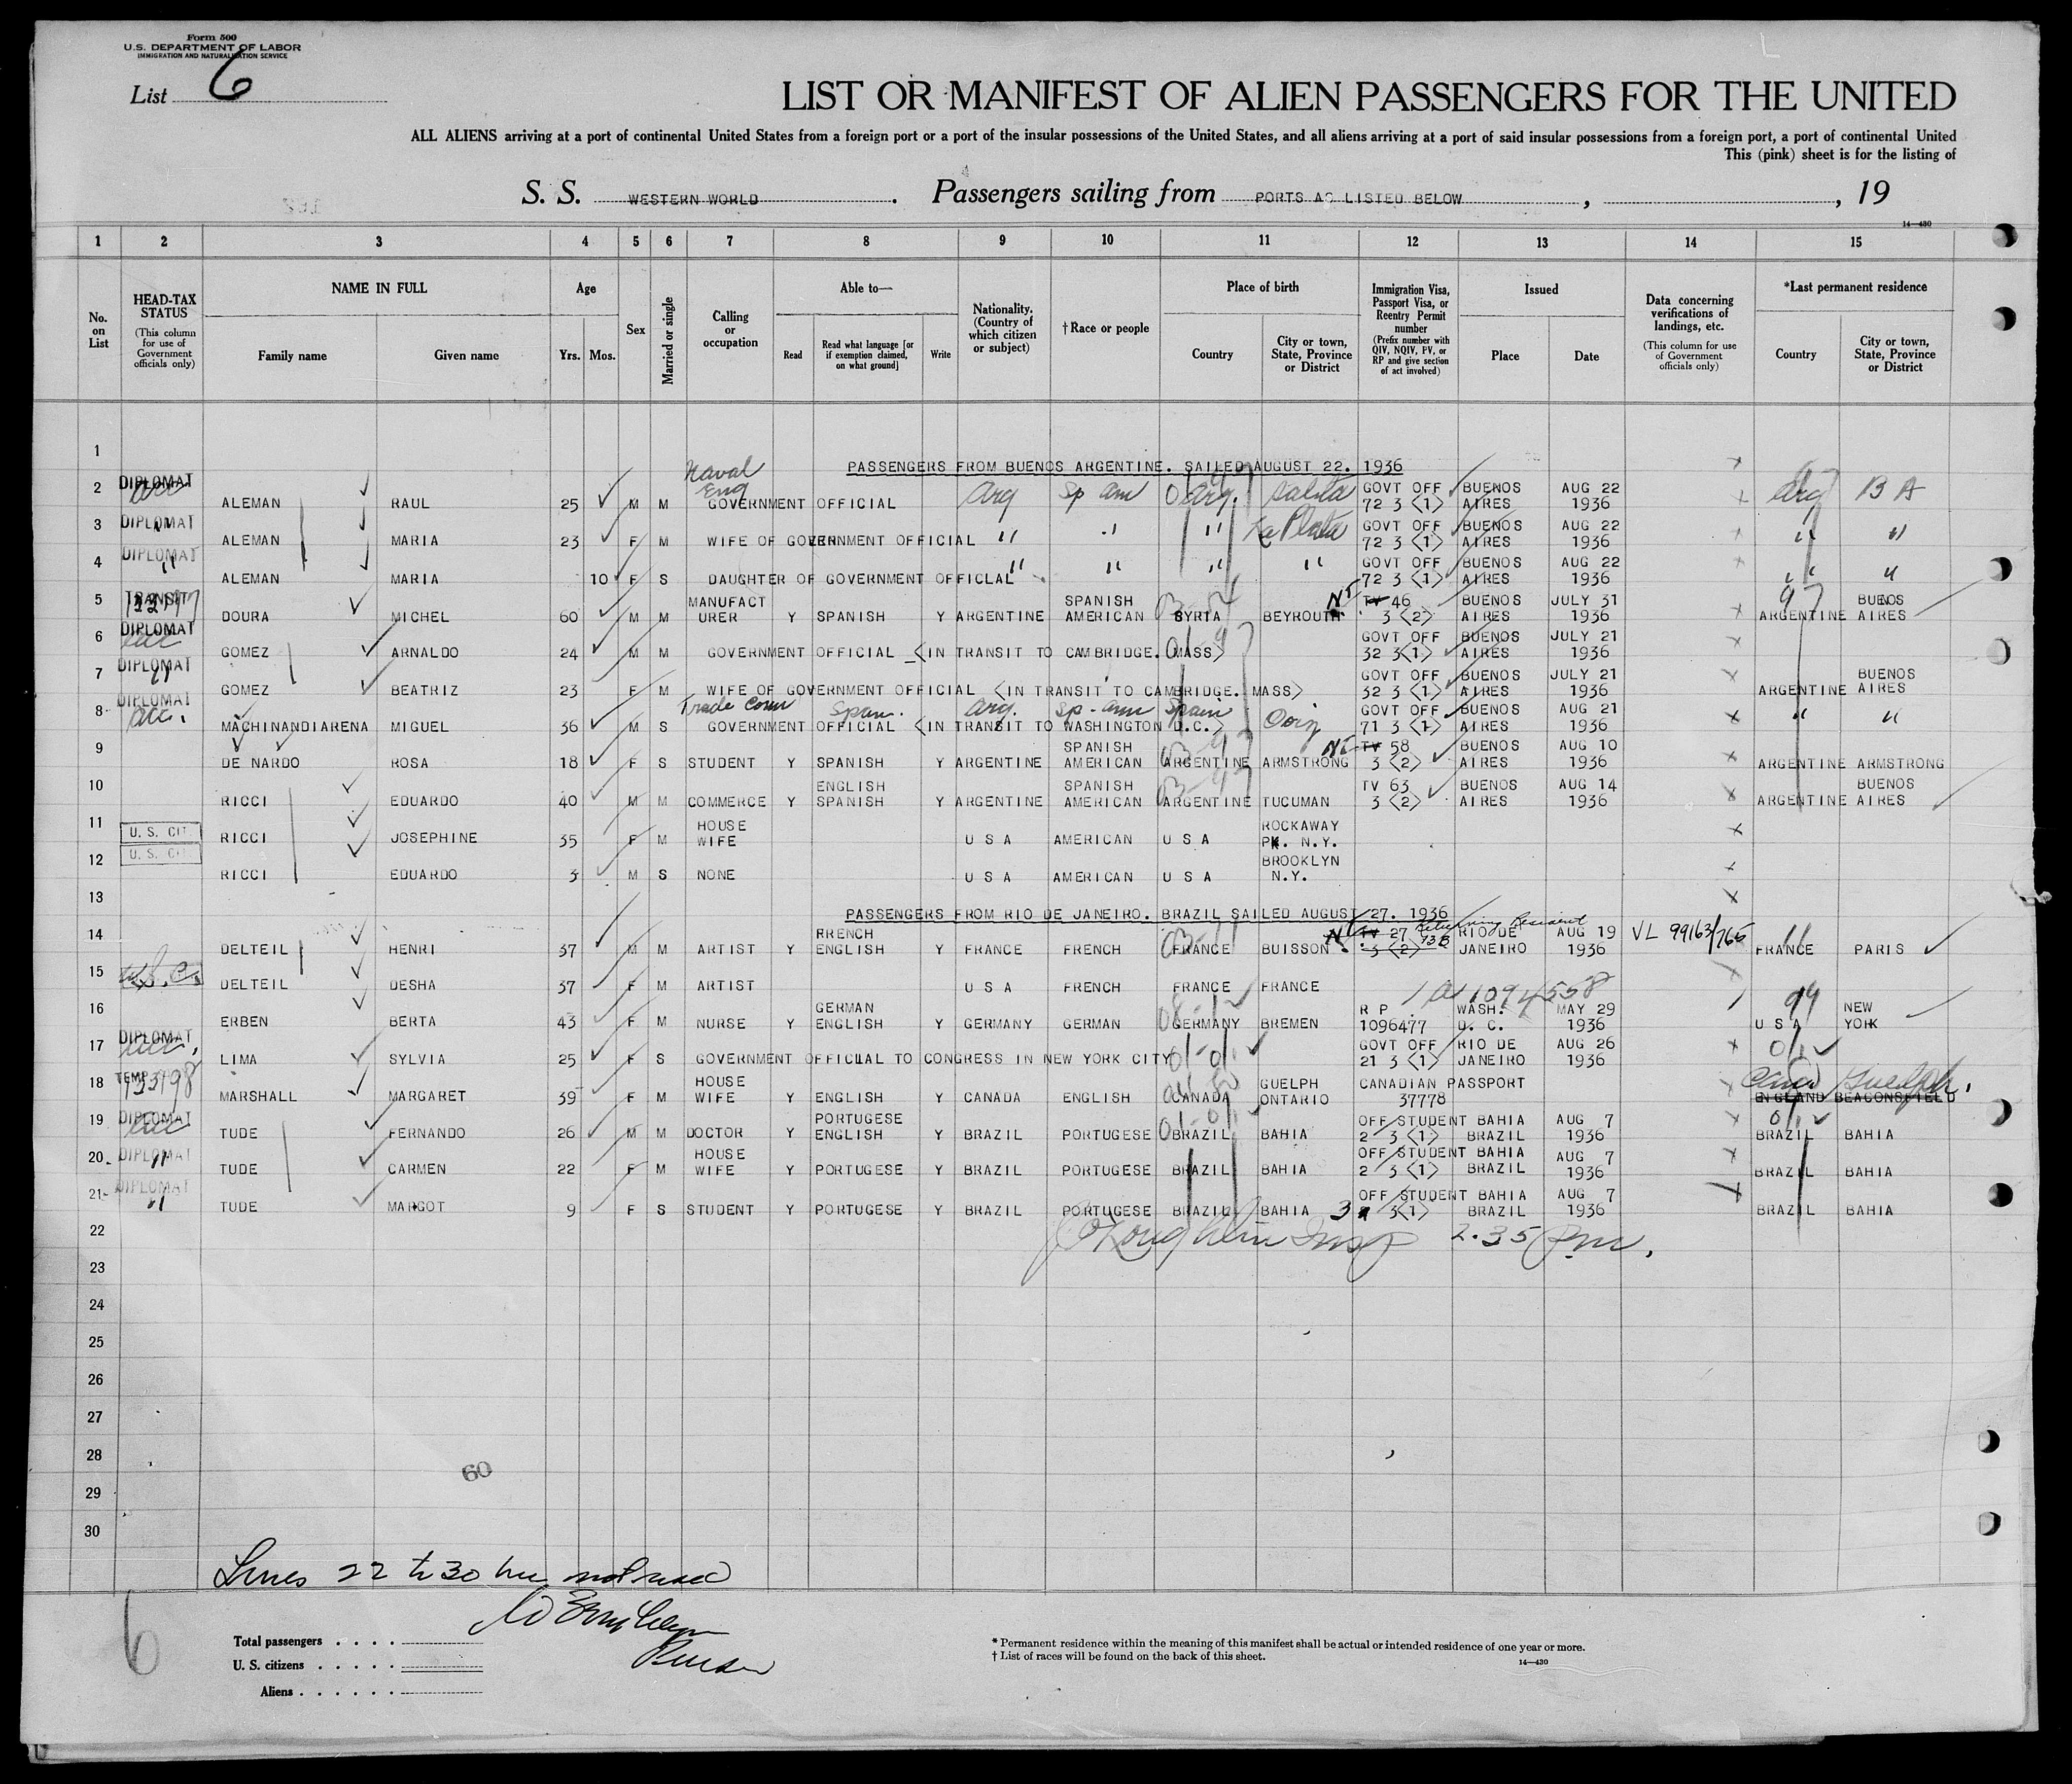 Form 500
U.S. DEPARTMENT OF LABOR
IMMIGRATION AND NATURALIZATION SERVICE
List 6
LIST OR MANIFEST OF ALIEN PASSENGERS FOR THE UNITED
ALL ALIENS arriving at a port of continental United States from a foreign port or a port of the insular possessions of the United States, and all aliens arriving at a port of said insular possessions from a foreign port, a port of continental United
This (pink) sheet is for the listing of
S. S. WESTERN WORLD. Passengers sailing from PORTS AS LISTED BELOW, , 19
14—430
1 2 3 4 5 6 7 8 9 10 11 12 13 14 15
No. on List
HEAD-TAX STATUS (This column for use of Government officials only)
NAME IN FULL Family name Given name
Age Yrs. Mos.
Sex
Married or single
Calling or occupation
Able to— Read Read what language [or if exemption claimed, on what ground] Write
Nationality. (Country of which citizen or subject)
†Race or people
Place of birth Country City or town, State, Province or District
Immigration Visa, Passport Visa, or Reentry Permit number (Prefix number with QIV, NQIV, PV, or RP and give section of act involved)
Issued Place Date
Data concerning verifications of landings, etc. (This column for use of Government officials only)
*Last permanent residence Country City or town, State, Province or District
1 PASSENGERS FROM BUENOS ARGENTINE. SAILED AUGUST 22. 1936
2 DIPLOMAT ALEMAN RAUL 25 M M Naval Eng GOVERNMENT OFFICIAL Arg Sp am Arg. Salta GOVT OFF 72 3 <1> BUENOS AIRES AUG 22 1936 Arg B A
3 DIPLOMAT " ALEMAN MARIA 23 F M WIFE OF GOVERNMENT OFFICIAL " " " La Plata GOVT OFF 72 3 <1> BUENOS AIRES AUG 22 1936 " "
4 DIPLOMAT " ALEMAN MARIA 10 F S DAUGHTER OF GOVERNMENT OFFICLAL " " " " GOVT OFF 72 3 <1> BUENOS AIRES AUG 22 1936 " "
5 TRANSIT DOURA MICHEL 60 M M MANUFACT URER Y SPANISH Y ARGENTINE SPANISH AMERICAN SYRIA BEYROUTH NI TV 46 3 <2> BUENOS AIRES JULY 31 1936 97 ARGENTINE BUENOS AIRES
6 DIPLOMAT GOMEZ ARNALDO 24 M M GOVERNMENT OFFICIAL <IN TRANSIT TO CAMBRIDGE. MASS> GOVT OFF 32 3<1> BUENOS AIRES JULY 21 1936
7 DIPLOMAT " GOMEZ BEATRIZ 23 F M WIFE OF GOVERNMENT OFFICIAL <IN TRANSIT TO CAMBRIDGE. MASS> GOVT OFF 32 3 <1> BUENOS AIRES JULY 21 1936 ARGENTINE BUENOS AIRES
8 DIPLOMAT acc. MACHINANDIARENA MIGUEL 36 M S Trade Com GOVERNMENT OFFICIAL Span. <IN TRANSIT TO WASHINGTON D.C.> Arg. Sp-am Spain GOVT OFF 71 3 <1> BUENOS AIRES AUG 21 1936 " "
9 DE NARDO ROSA 18 F S STUDENT Y SPANISH Y ARGENTINE SPANISH AMERICAN ARGENTINE ARMSTRONG NI TV 58 3 <2> BUENOS AIRES AUG 10 1936 ARGENTINE ARMSTRONG
10 RICCI EDUARDO 40 M M COMMERCE Y ENGLISH SPANISH Y ARGENTINE SPANISH AMERICAN ARGENTINE TUCUMAN TV 63 3 <2> BUENOS AIRES AUG 14 1936 ARGENTINE BUENOS AIRES
11 U. S. CIT. RICCI JOSEPHINE 35 F M HOUSE WIFE U S A AMERICAN U S A ROCKAWAY PK. N.Y.
12 U. S. CIT. RICCI EDUARDO 3 M S NONE U S A AMERICAN U S A BROOKLYN N.Y.
13 PASSENGERS FROM RIO DE JANEIRO. BRAZIL SAILED AUGUST 27. 1936
14 DELTEIL HENRI 37 M M ARTIST Y RRENCH ENGLISH Y FRANCE FRENCH FRANCE BUISSON TV 27 3 <2> Returning Resident 13B RIO DE JANEIRO AUG 19 1936 VL 99163/765 FRANCE PARIS
15 U.S.C. DELTEIL DESHA 37 F M ARTIST U S A FRENCH FRANCE FRANCE
16 ERBEN BERTA 43 F M NURSE Y GERMAN ENGLISH Y GERMANY GERMAN GERMANY BREMEN R P. 1096477 WASH. D. C. MAY 29 1936 99 U S A NEW YORK
17 DIPLOMAT LIMA SYLVIA 25 F S GOVERNMENT OFFICIAL TO CONGRESS IN NEW YORK CITY GOVT OFF 21 3 <1> RIO DE JANEIRO AUG 26 1936
18 TEMP 133198 MARSHALL MARGARET 39 F M HOUSE WIFE Y ENGLISH Y CANADA ENGLISH CANADA GUELPH ONTARIO CANADIAN PASSPORT 37778 Guelph. ENGLAND BEACONSFIELD
19 DIPLOMAT TUDE FERNANDO 26 M M DOCTOR Y PORTUGESE ENGLISH Y BRAZIL PORTUGESE BRAZIL BAHIA OFF STUDENT 2 3 <1> BAHIA BRAZIL AUG 7 1936 BRAZIL BAHIA
20 DIPLOMAT " TUDE CARMEN 22 F M HOUSE WIFE Y PORTUGESE Y BRAZIL PORTUGESE BRAZIL BAHIA OFF STUDENT 2 3 <1> BAHIA BRAZIL AUG 7 1936 BRAZIL BAHIA
21 DIPLOMAT " TUDE MARGOT 9 F S STUDENT Y PORTUGESE Y BRAZIL PORTUGESE BRAZIL BAHIA 3 OFF STUDENT 3<1> BAHIA BRAZIL AUG 7 1936 BRAZIL BAHIA
22 Insp 2.35 Pm.
23
24
25
26
27
28
60
29
30
Lines 22 to 30 not used
6
Total passengers . . . .
U. S. citizens . . . . .
Aliens . . . . . .
Purser
* Permanent residence within the meaning of this manifest shall be actual or intended residence of one year or more.
† List of races will be found on the back of this sheet.
14—430